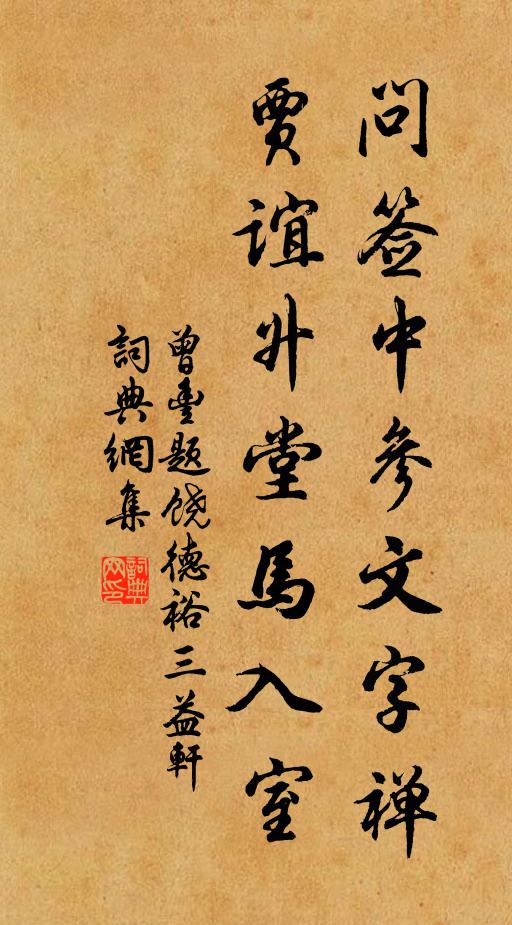 问签中参文字禅
贾谊升堂馬入室
曾豊题饶德裕三益軒
詞典網集
詞典
网印